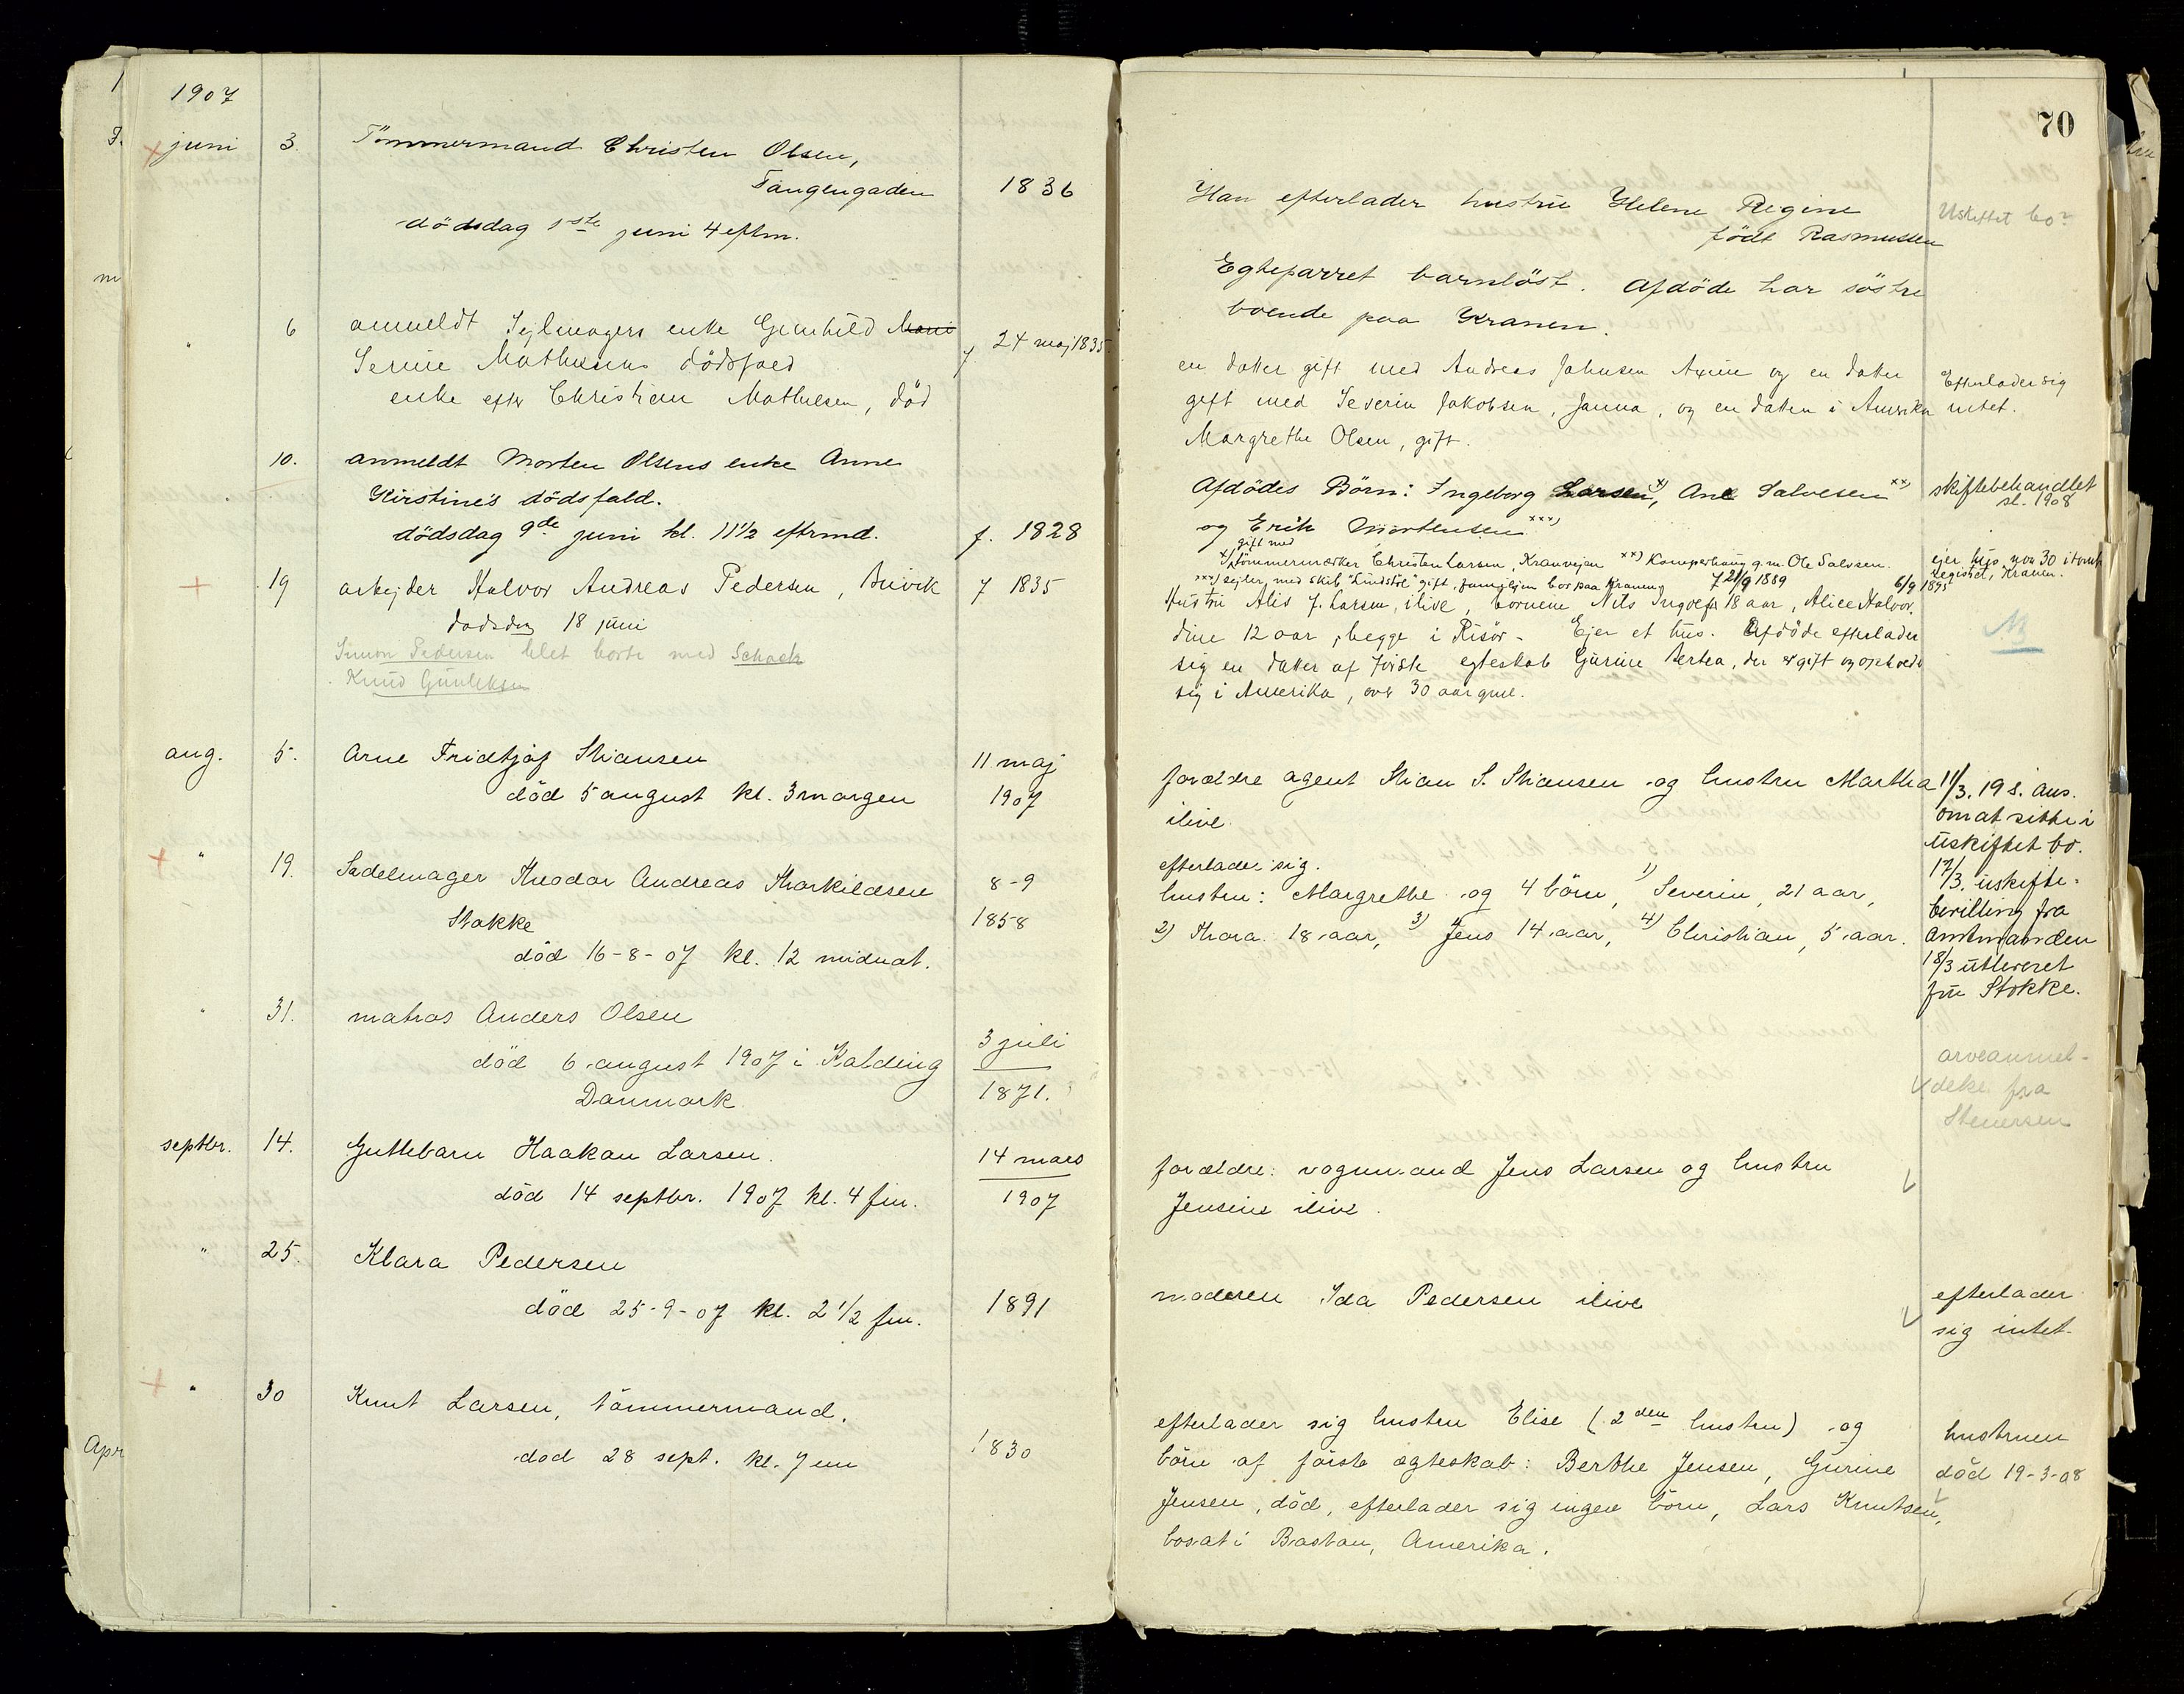 1907
70
juni 3. Tömmermand Christen Olsen,
Tangengaden 1836
dödsdag 1ste juni 4 eftm.
Han efterlader hustru Helene Regine
födt Rasmussen
Uskiftet bo?
Egteparret barnlöst. Afdöde har söstre
boende paa Kranen.
" 6 anmeldt Sejlmagers enke Gunhild
Serine Mathisens dödsfald f 24 maj 1835
enke efter Christian Mathiesen, död
en datter gift med Andreas Johnsen Axine og en datter
gift med Severin Jakobsen, Janna, og en datter i Amerika
Margrethe Olsen, gift.
Efterlader sig
intet.
10. anmeldt Morten Olsens enke Anne
Kirstine's dödsfald.
dödsdag 9de juni kl. 11½ eftrmd. f. 1828
Afdödes Börn: Ingeborg Larsen x), Ane Salvesen xx)
og Erik Mortensen xxx)
gift med
x) tömmermærker Christen Larsen, Kranvejen xx) g.m. Ole Salvesen.
xxx) sejler med skib "Lindstöl" gift, familjen bor paa Kranen
skiftebehandlet
sl. 1908
ejer hus no 30
registret, Kranen.
" 19 arbejder Halvor Andreas Pedersen, Buvik f 1835
dödsdag 18 juni
Simon Pedersen blet borte med Schack
Knud Gunleksen
f 21/9 1889 6/9 1895
Hustru Alis f. Larsen, ilive, börnene Nils Ingolf 18 aar, Alice Halvor.
dine 12 aar, begge i Risör - Ejer et hus. Afdöde efterlader
sig en datter af förste egteskab Gurine Bertea, der er gift og opholder
sig i Amerika, over 30 aar gml.
aug. 5. Arne Fridtjof Stiansen 11 maj
död 5 august kl. 3 morgen 1907
forældre agent Stian S. Stiansen og hustru Martha
ilive
" 19. Sadelmager Theodor Andreas Thorkildsen 8-9
Stokke 1858
död 16-8-07 kl. 12 midnat.
efterlader sig.
hustru: Margrethe og 4 börn, 1) Severin, 21 aar,
2) Thora 18 aar, 3) Jens 14 aar, 4) Christian, 5 aar.
11/3. 19 s. ans.
om at sitte i
uskiftet bo.
17/3. uskifte-
bevilling fra
Amtmanden
18/3 utleveret
fru Stokke.
" 31. matros Anders Olsen 3 juli
död 6 august 1907 i Kolding 1871.
Danmark
arveanmel-
delse fra
Stenersen
septbr. 14. Guttebarn Haakon Larsen. 14 mars
död 14 septbr. 1907 kl. 4 fm. 1907
forældre: vognmand Jens Larsen og hustru
Jensine ilive.
" 25. Klara Pedersen
död 25-9-07 kl. 2½ fm. 1891
moderen Ida Pedersen ilive
efterlader
sig intet
" 30 Knut Larsen, tömmermand.
död 28 sept. kl. 7 em 1830
efterlader sig hustru Elise (2den hustru) og
börn af förste ægteskab: Berthe Jensen, Gurine
Jensen, död, efterlader sig ingen börn, Lars Knutsen,
bosat i Boston, Amerika.
hustruen
död 19-3-08
Apr